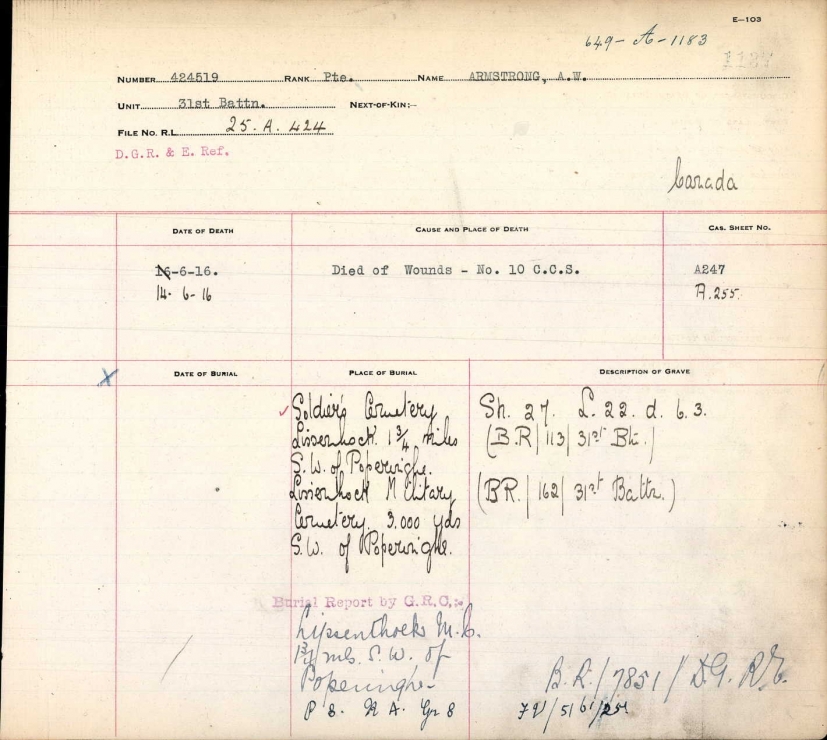 E—103
649- A-1183
NUMBER 424519 RANK Pte. NAME ARMSTRONG, A.W.
UNIT 31st Battn. NEXT-OF-KIN:—
FILE NO. R.L. 25. A. 424
D.G.R. & E. Ref.
Canada
DATE OF DEATH CAUSE AND PLACE OF DEATH CAS. SHEET NO.
16-6-16. Died of Wounds - No. 10 C.C.S. A247
14. 6-16 A.255.
DATE OF BURIAL PLACE OF BURIAL DESCRIPTION OF GRAVE
Soldier's Cemetery Sh. 27. L. 22. d. 6. 3.
Lissenhock. 1 3/4 miles (B.R/113/31st Bn.)
S.W. of Poperinghe.
Lissenhock Military (BR./162/31st Battn.)
Cemetery. 3,000 yds
S.W. of Poperinghe.
Burial Report by G.R.C,:-
Lijssenthoek M.C.
1¾ mls. S.W. of
Poperinghe B.R./7851/D.G.R.E.
P 8. R A. Gr 8